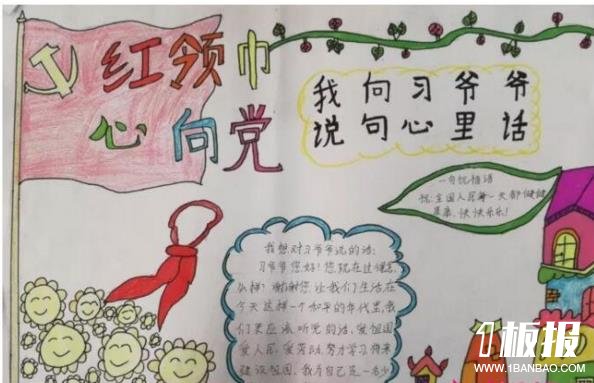 红领巾
心向党
我向习爷爷
说句心里话
一句祝福语
祝:全国人民每一天都健健
康康、快快乐乐!
我想对习爷爷说的话:
习爷爷您好!您现在过得怎
么样?谢谢您让我们生活在
今天这样一个和平的年代里,我
们要应该听党的话,爱祖国
爱人民,爱劳动,努力学习将来
建设祖国,我为自己是一名少
1板报
WWW.1BANBAO.COM